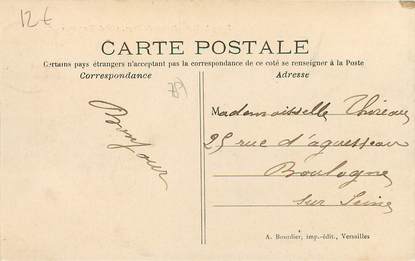 12€
CARTE POSTALE
Certains pays étrangers n'acceptant pas la correspondance de ce coté se renseigner à la Poste
Correspondance
Adresse
78
Bonjour
Mademoisselle Thoreau
25 rue d'aguesseau
Boulogne
sur Seine
A. Bourdier, imp.-édit., Versailles